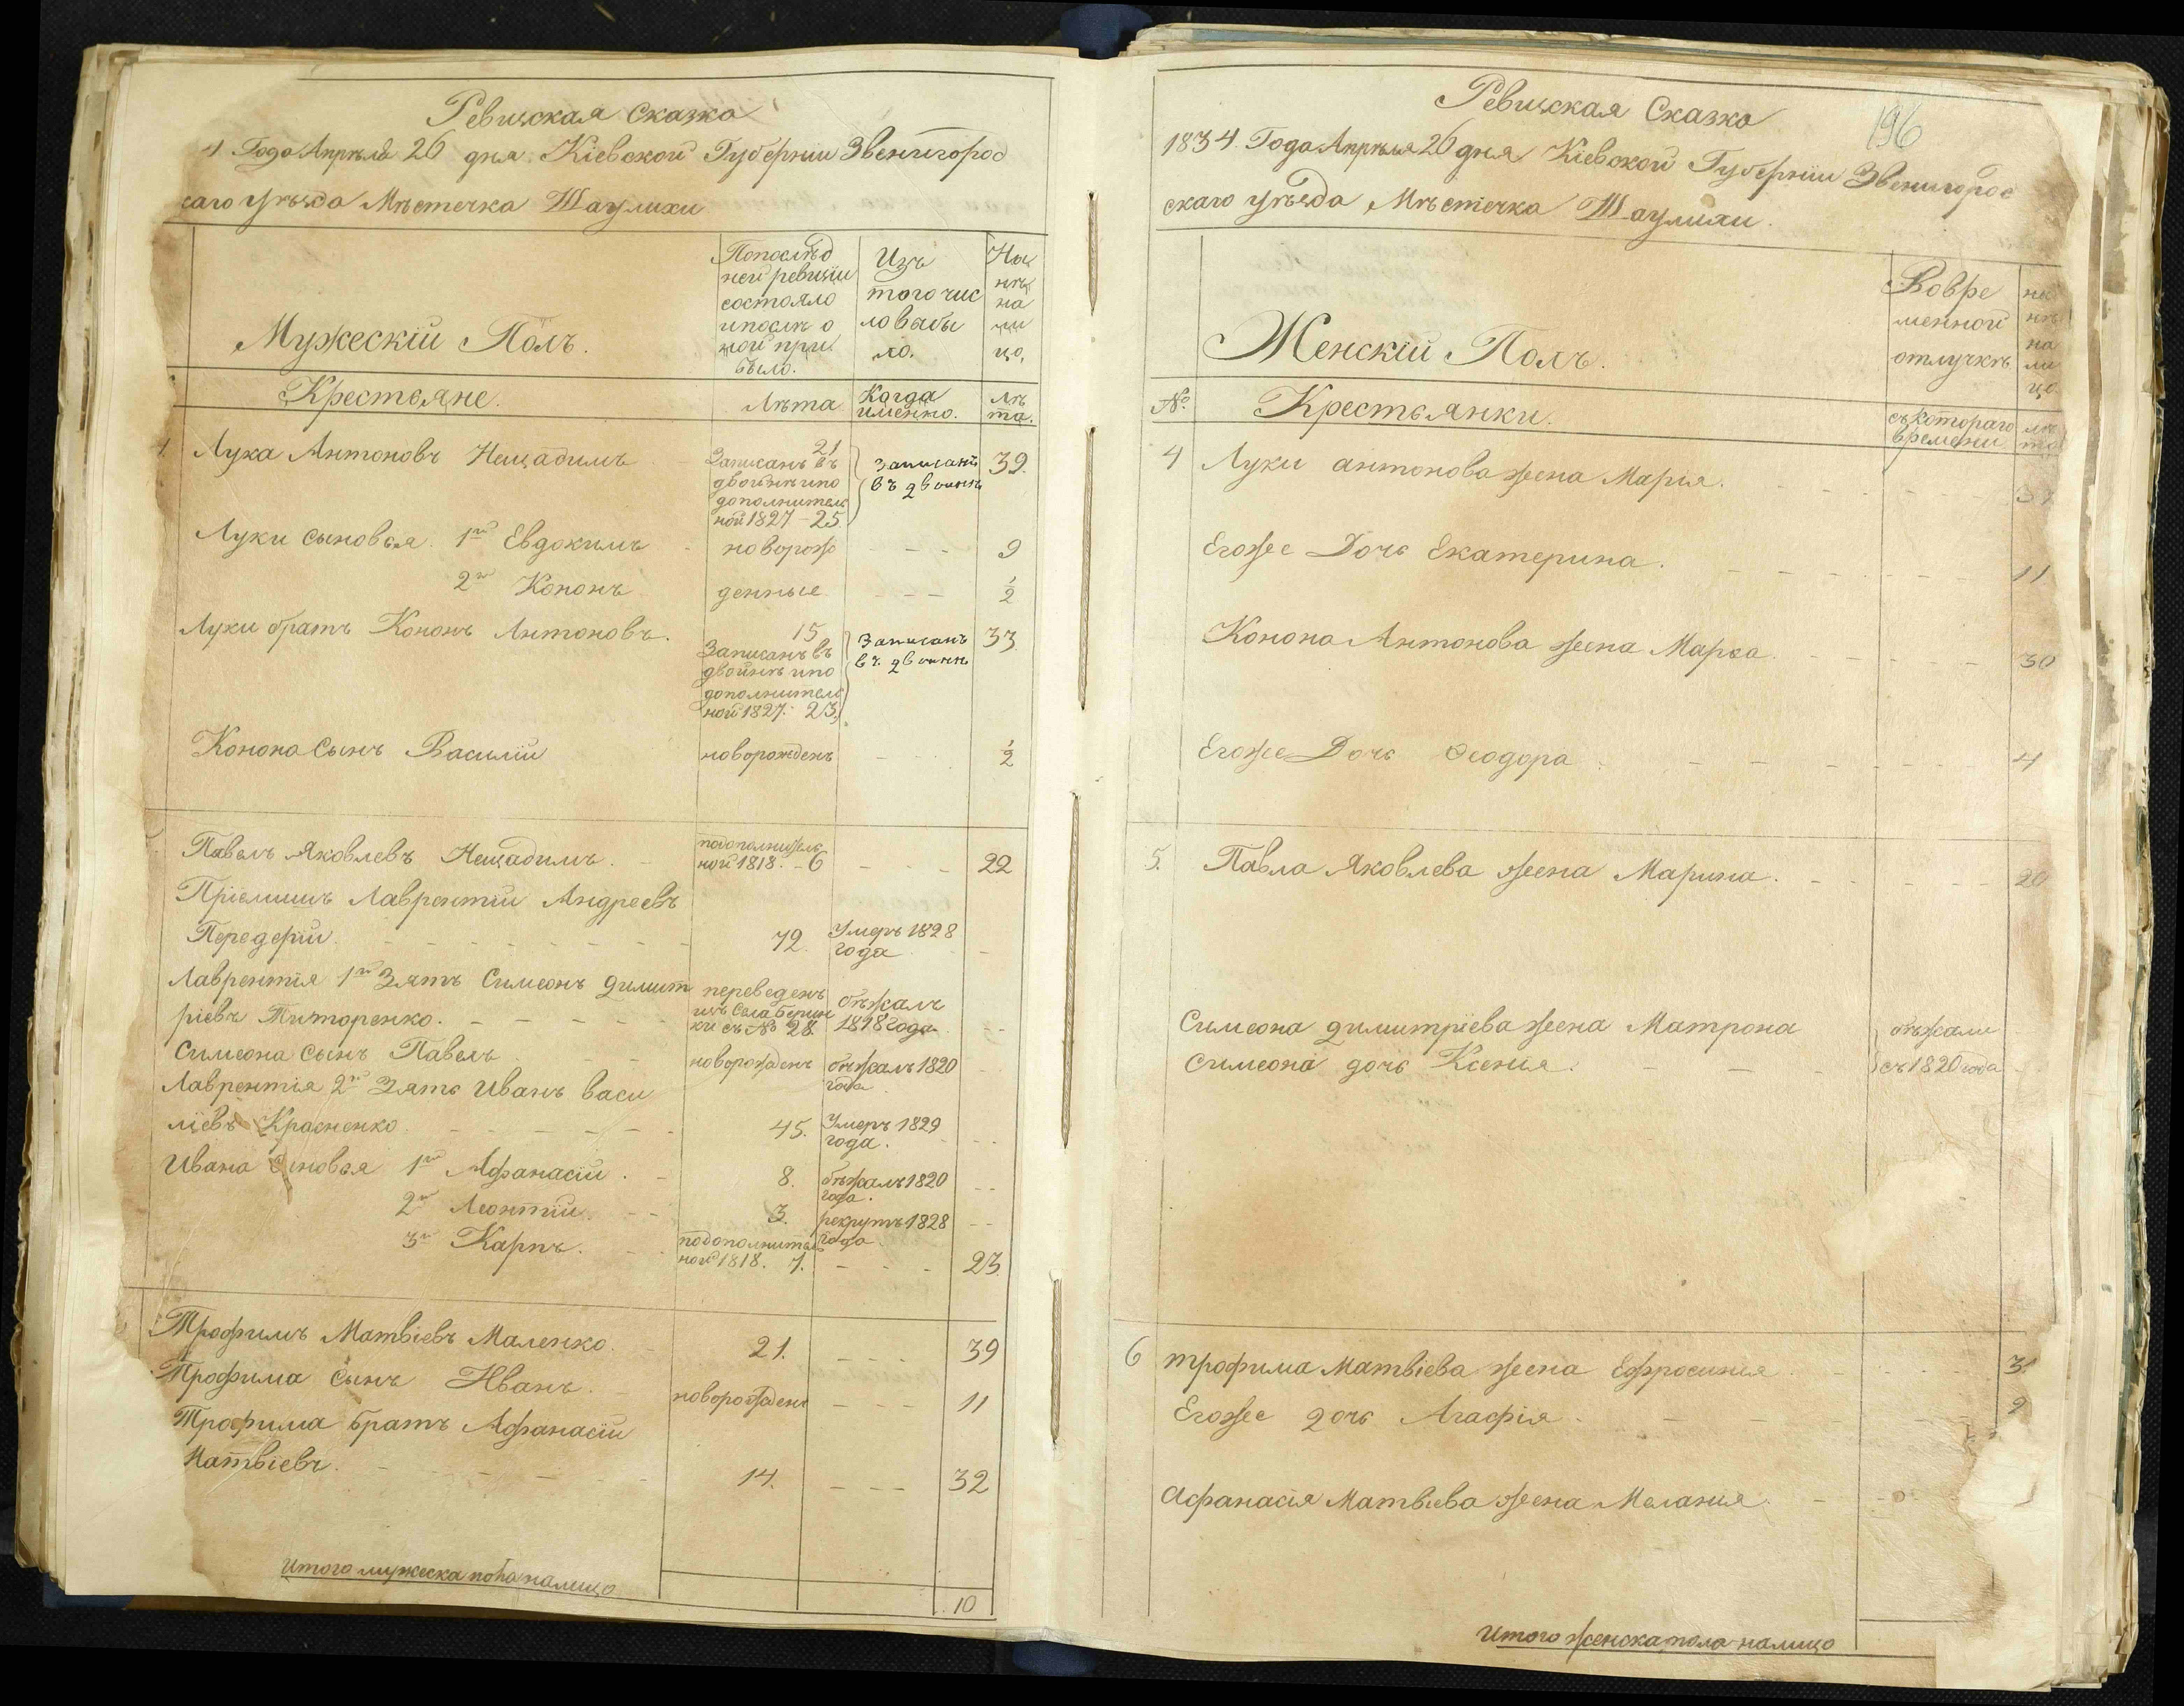 Ревизская Сказка
4 Года Апрѣля 26 дня Кіевской Губерніи Звенигород
скаго уѣзда Мѣстечка Шаулихи
Мужескій Полъ.
Попослѣд
ней ревизіи
состояло
ипослѣ о
ной при
было.
Изъ
того чис
ла выбы
ло.
Ны
нѣ
на
ли
цо,
Крестьяне.
Лѣта
Когда
именно.
Лѣ
та.
1. Лука Антоновъ Нещадимъ
21
Записанъ въ
двойнѣ ипо
дополнитель
ной 1827 - 25.
Записанъ
въ двойнѣ
39.
Луки сыновья. 1й Евдокимъ
новорож
9
2й Кононъ
денные
1/2
Луки братъ Кононъ Антоновъ.
15
Записанъ въ
двойнѣ ипо
дополнитель
ной 1827. 23.
Записанъ
въ двойнѣ
33
Конона Сынъ Василій
новорожденъ
1/2
Павелъ Яковлевъ Нещадимъ.
подополнитель
ной 1818. - 6
22
Пріемышъ Лаврентій Андреевъ
Передерій.
72.
Умеръ 1828
года
Лаврентія 1й Зять Симеонъ Димит
ріевъ Титоренко.
переведенъ
изъ Села
ки съ № 28.
бѣжалъ
1818 года
Симеона Сынъ Павелъ
новорожденъ
бѣжалъ 1820
года
Лаврентія 2й Зять Иванъ Васи
ліевъ Красненко.
45.
Умеръ 1829
года.
Ивана Сыновья 1й Афанасій.
8.
бѣжалъ 1820
года.
2й Леонтій.
3.
рекрутъ 1828
года
3й Карпъ.
подополнитель
ной 1818. 7.
23.
Трофимъ Матвіевъ Маленко.
21.
39
Трофима Сынъ Иванъ.
новорожденъ
11
Трофима братъ Афанасій
Матвіевъ.
14.
32
Итого мужеска пола налицо
10
196
Ревизская Сказка
1834. Года Апрѣля 26 дня Кіевской Губерніи Звенигород
скаго уѣзда Мѣстечка Шаулихи.
Женскій Полъ.
Вовре
менной
отлучкѣ.
ны
нѣ
на
ли
цо.
№
Крестьянки.
съ котораго
времени
лѣ
та
4 Луки антонова жена Марія.
Егоже Дочь Екатерина.
11
Конона Антонова жена Марѳа.
30
Егоже Дочь Ѳеодора
4
5. Павла Яковлева жена Марина.
20
Симеона Димитріева жена Матрона
Симеона дочь Ксенія.
бѣжали
съ 1820 года
6 трофима Матвіева жена Ефросинія
3
Егоже дочь Агафія
9
Афанасія Матвіева жена Меланія.
Итого женска пола налицо